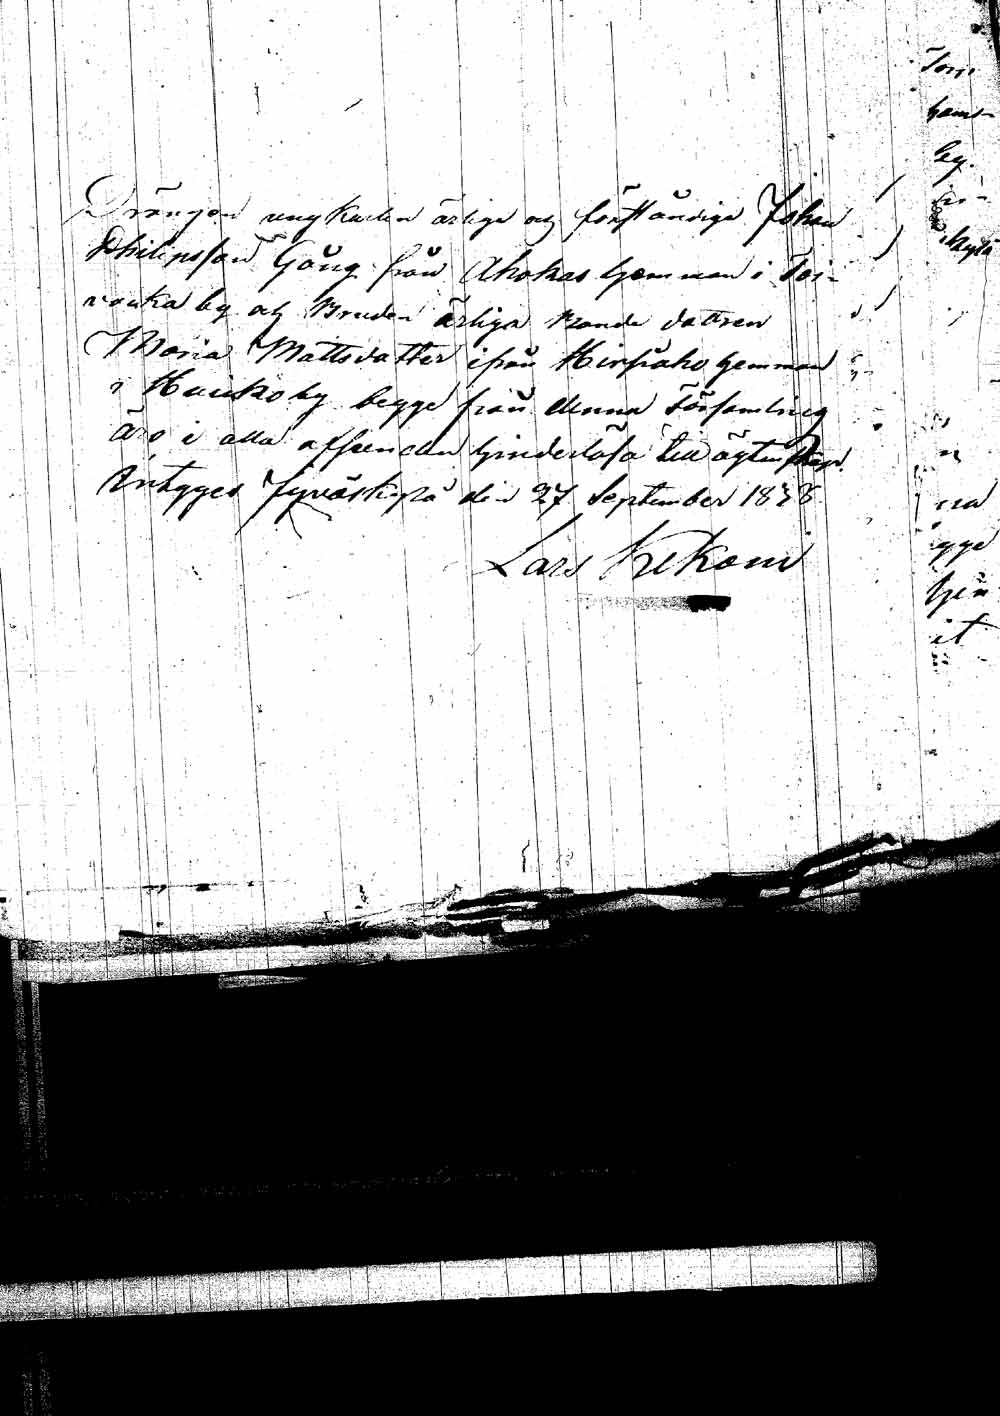 Drängen ungkarlen ärlige och förståndige Johan
Philipsson Gång från Ahokas hemman i Toi-
vonka by och Bruden ärliga Bonde dottren
Maria Mattsdotter ifrån Hirsiaho hemman
i Hankoby begge från denna Församling
äro i alla afseenden hinderlösa till ägtenskap.
Intygges Jyväskylä den 27 September 1838
Lars Kekoni
hemt
by.
na
ygge
hin
it